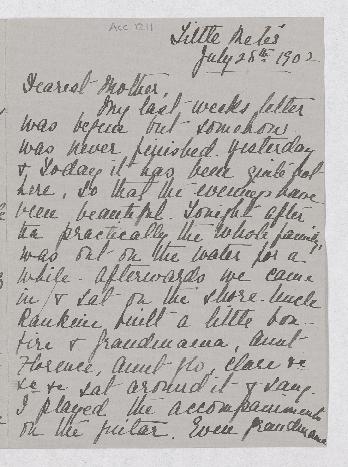 Acc 1211
Little Metis
July 28th 1902
Dearest Mother,
My last weeks letter
was begun but somehow
was never finished. Yesterday
& today it has been quite hot
here, so that the evenings have
been beautiful. Tonight after
tea practically the whole family
was out on the water for a
while. Afterwards we came
in & sat on the shore. Uncle
Rankine built a little bon-
fire & Grandmama, Aunt
Florence, Aunt Flo, Clare &c
&c &c sat around it & sang.
I played the accompaniments
on the guitar. Even Grandmama